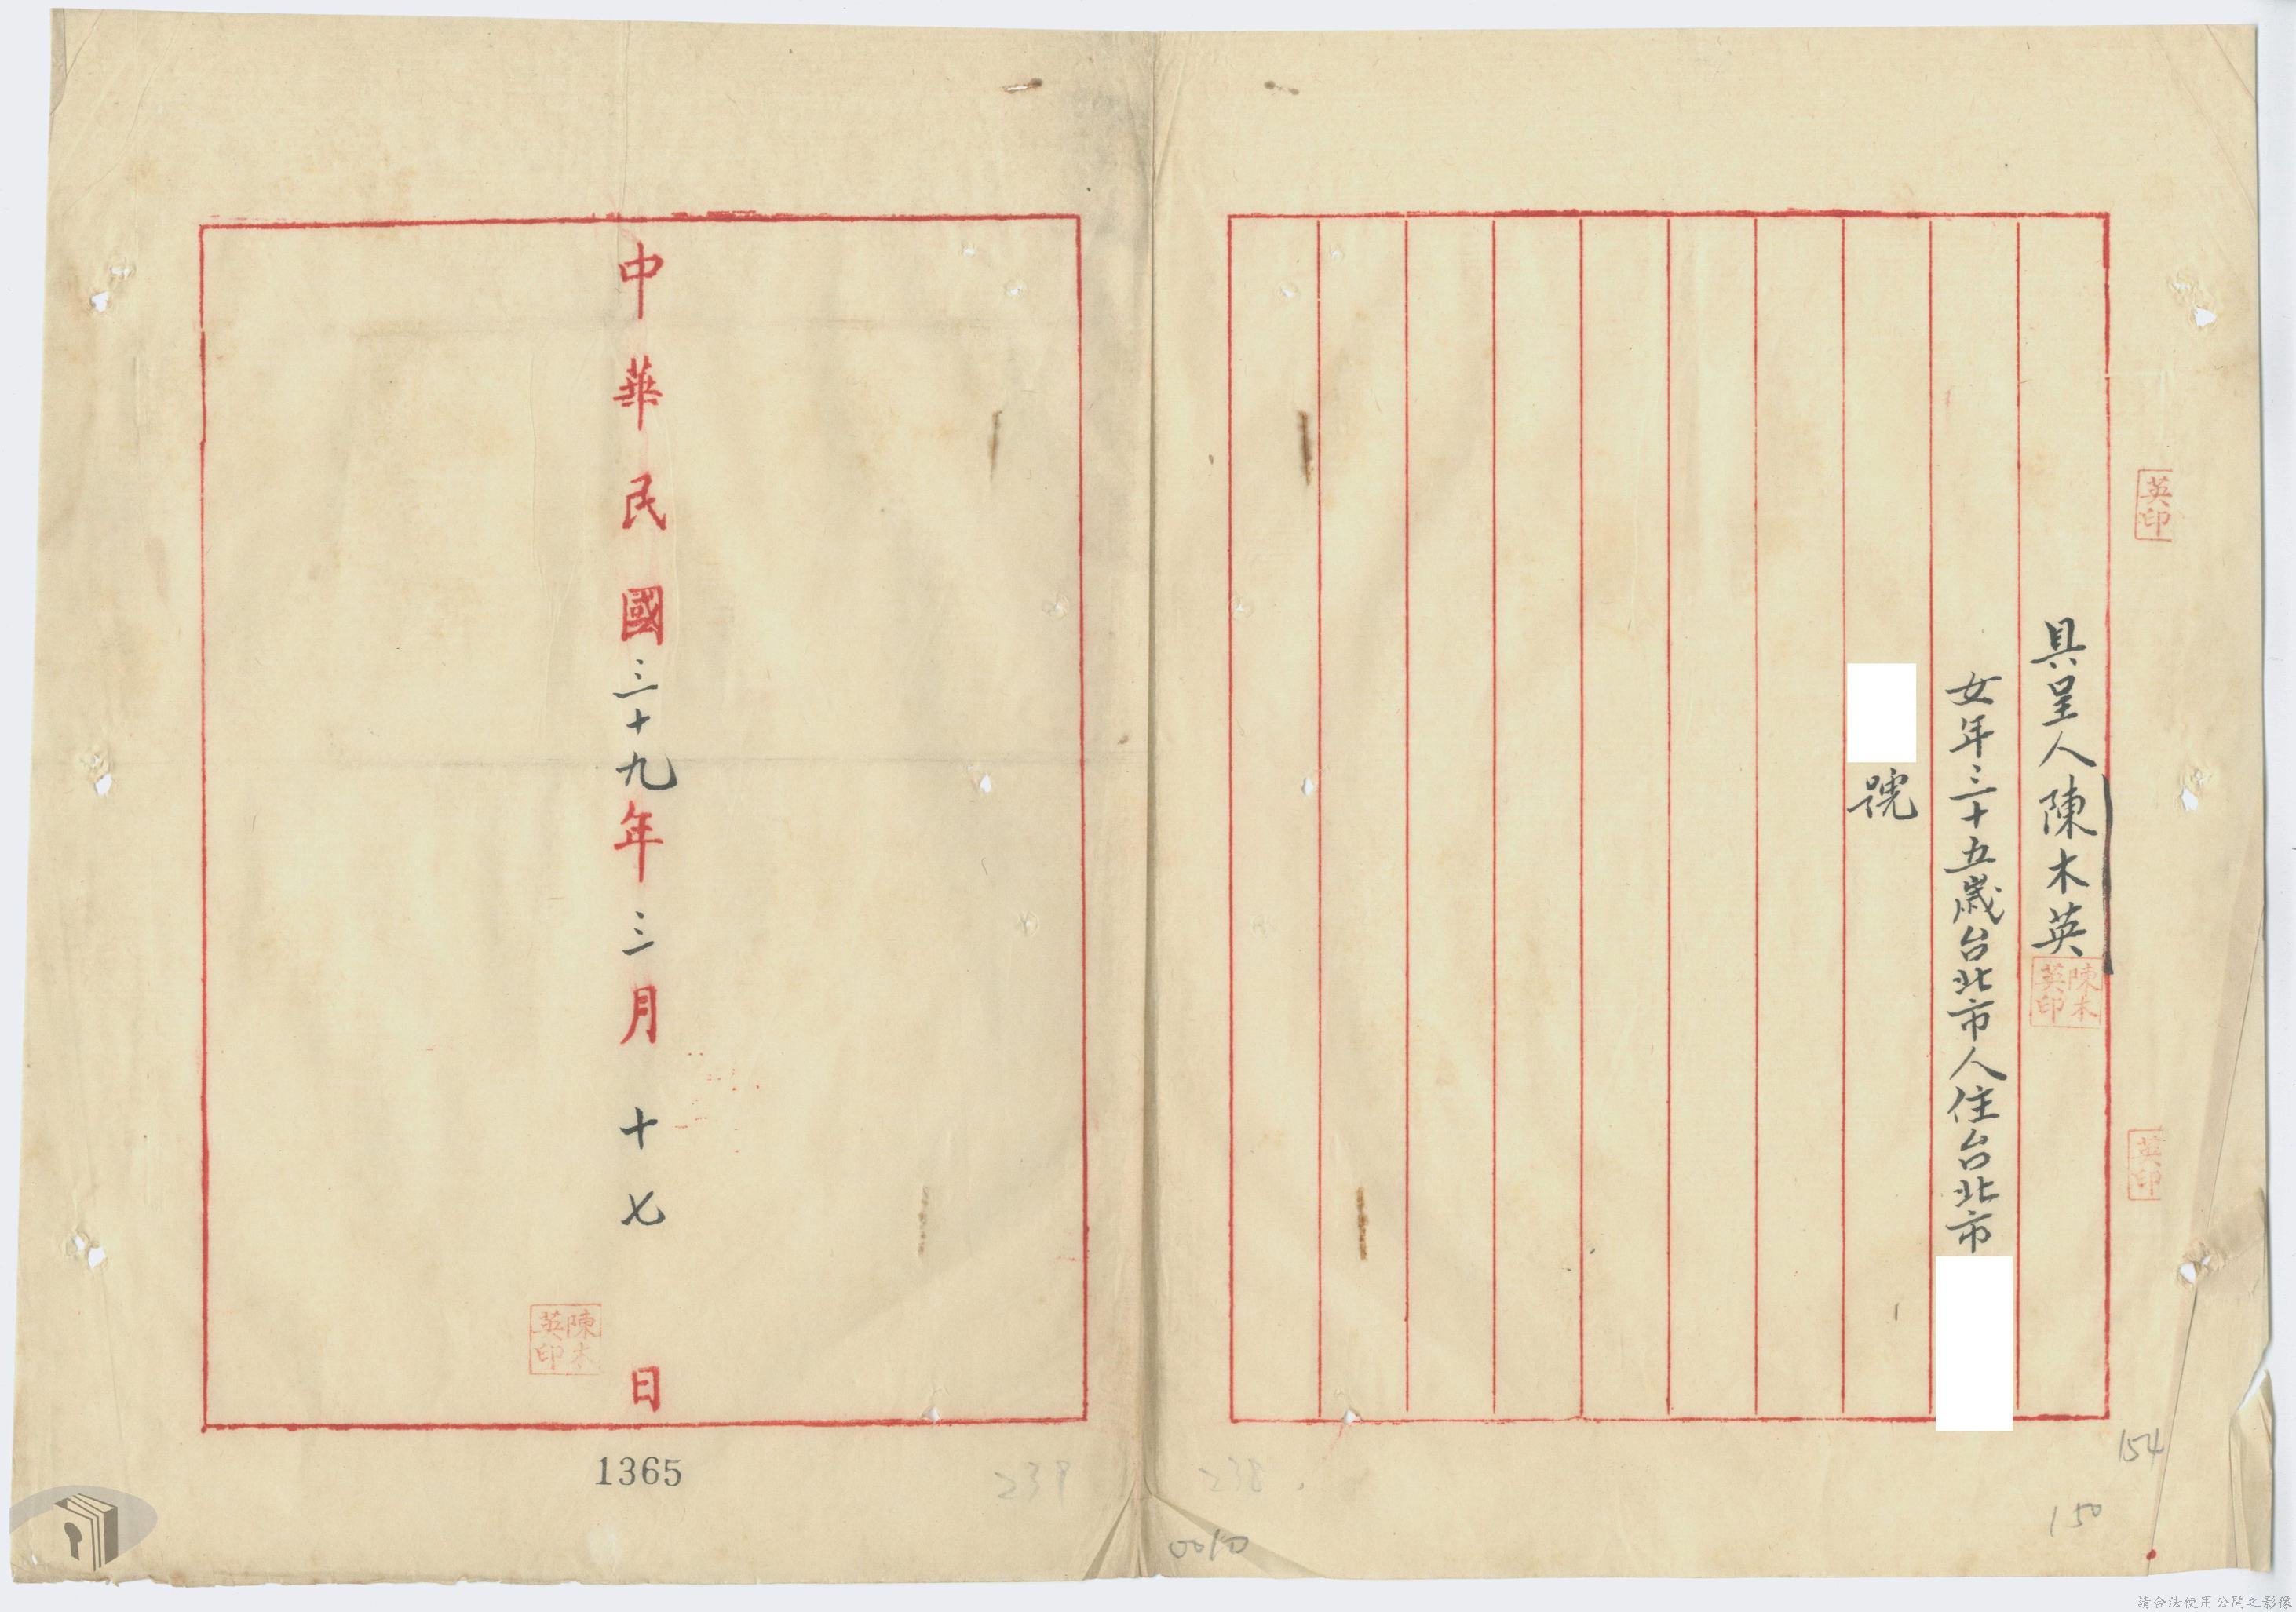 具呈人陳木英
陳木英印
女年三十五歲台北市人住台北市
號
英印
英印
中華民國三十九年三月十七日
陳木英印
1365
239
238
0010
154
150
請合法使用公開之影像